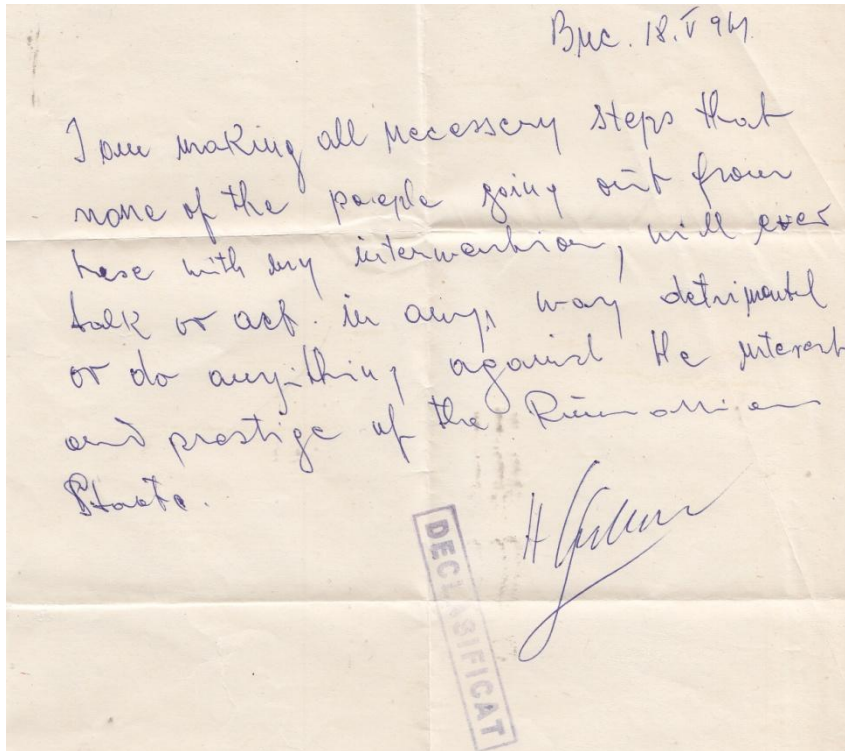 Buc. 18.V 964.
I am making all necessery steps that
none of the people going out from
here with my interwention, will ever
talk or act in any way detrimental
or do anything against the interest
and prestige of the Rumanian
State.
H
DECLASIFICAT